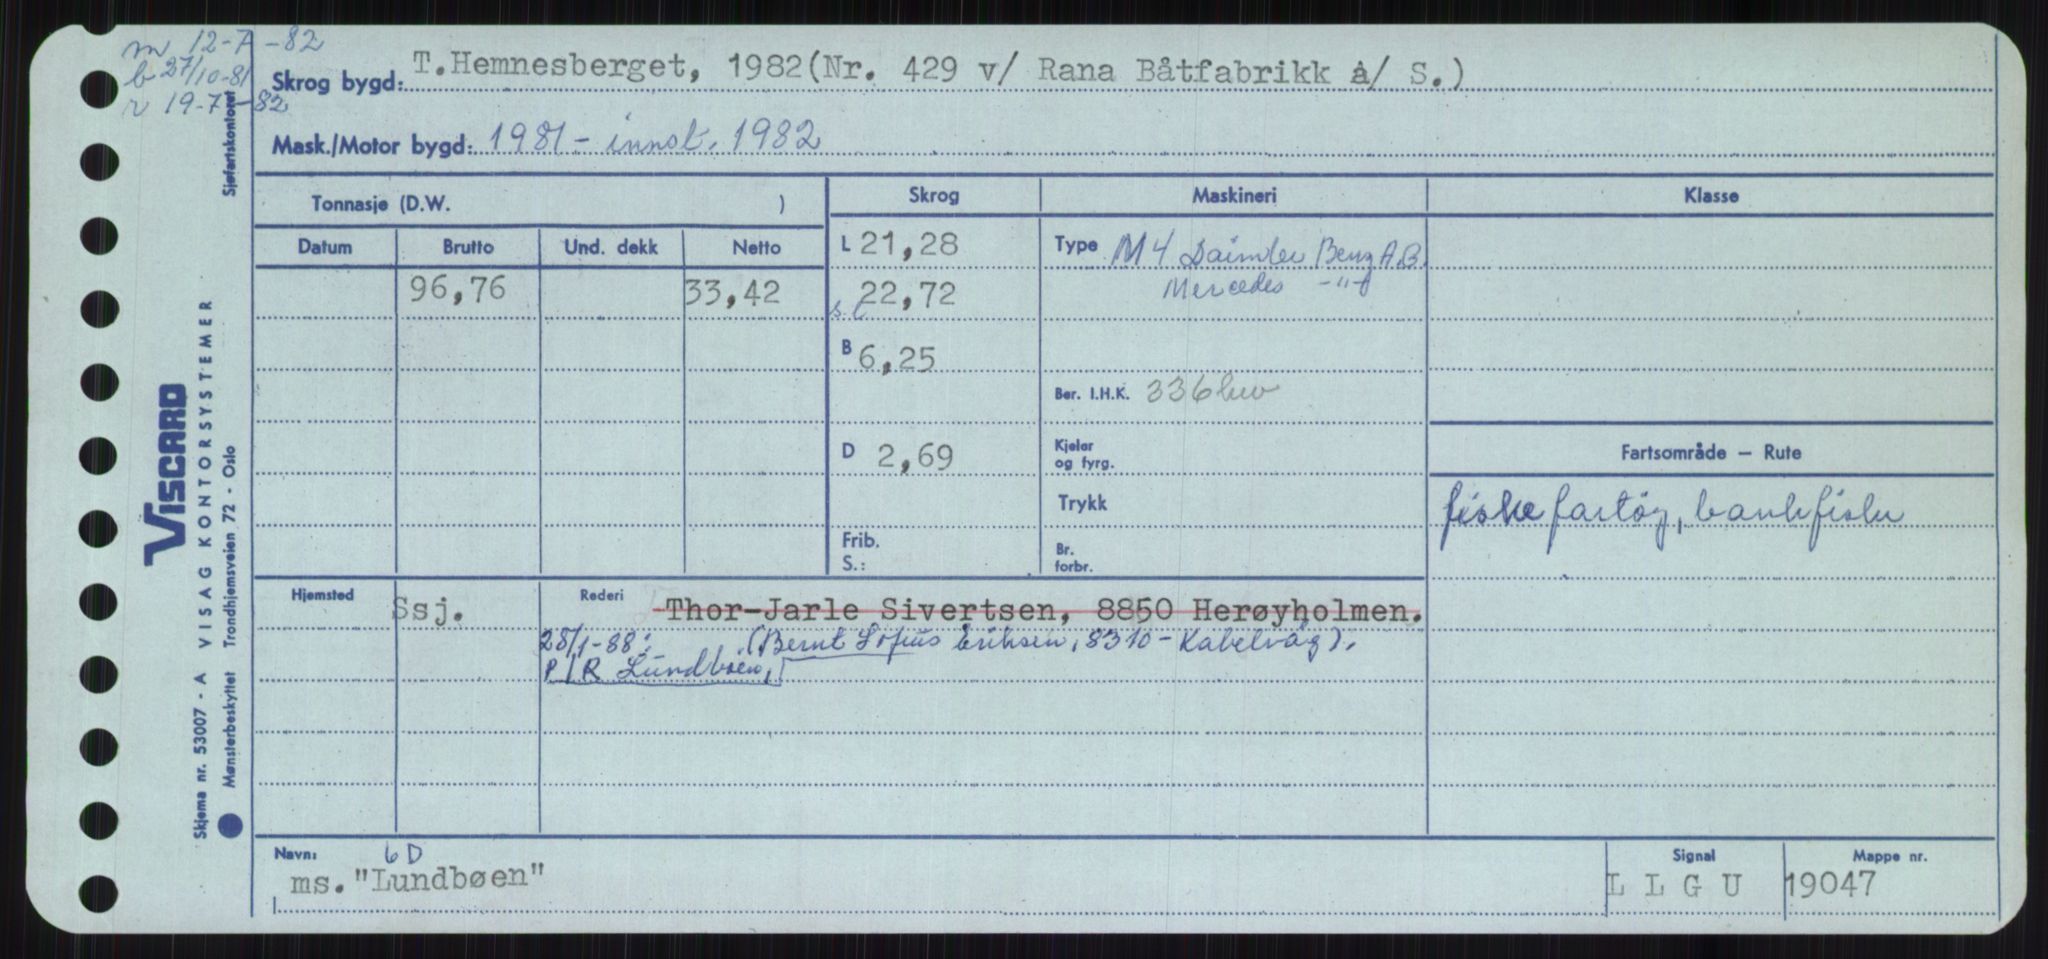 m 12-7-82
b 27/10-81
r 19-7-82
Skrog bygd: T.Hemnesberget, 1982(Nr. 429 v/ Rana Båtfabrikk A/ S.)
Mask./Motor bygd: 1981 - innst. 1982
Sjøfartskontoret
Tonnasje (D.W. )
Skrog
Maskineri
Klasse
Datum
Brutto
Und. dekk
Netto
96,76
33,42
L 21,28
s.l 22,72
B 6,25
D 2,69
Frib.
S.:
Type M 4 Daimler Benz A.B.
Mercedes -"-
Ber. I.H.K. 336 hw
Kjeler
og fyrg.
Trykk
Br.
forbr.
Fartsområde — Rute
fiskefartøy, bankfiske
Hjemsted
Ssj.
Rederi
Thor-Jarle Sivertsen, 8850 Herøyholmen.
28/1-88: (Bernt Sofus Eriksen, 8310 - Kabelvåg).
P/R Lundbøen,
Navn: 6D
ms. "Lundbøen"
Signal
L L G U
Mappe nr.
19047
VISCARD
VISAG KONTORSYSTEMER
Skjema nr. 53007 - A
Mønsterbeskyttet Trondhjemsveien 72 - Oslo